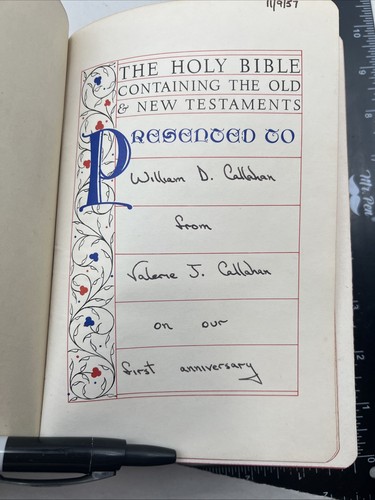 11/9/57
THE HOLY BIBLE
CONTAINING THE OLD
& NEW TESTAMENTS
PRESENTED TO
William D. Callahan
from
Valerie J. Callahan
on our
first anniversary
Mr. Pen